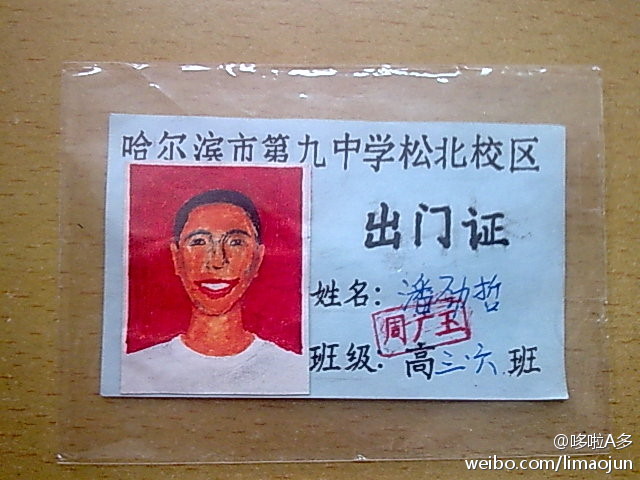 哈尔滨市第九中学松北校区
出门证
姓名：潘劲哲
周广玉
班级：高三·六班
@哆啦A多
weibo.com/limaojun